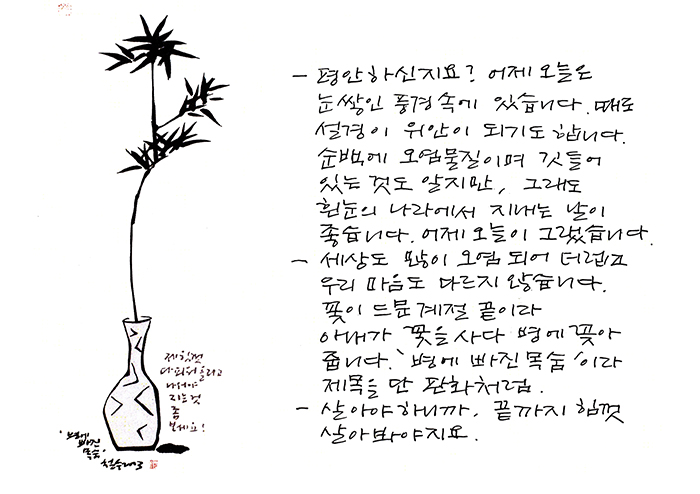 - 평안하신지요? 어제 오늘은
눈쌓인 풍경 속에 있습니다. 때로
설경이 위안이 되기도 합니다.
순백에 오염물질이며 깃들어
있는 것도 알지만, 그래도
흰눈의 나라에서 지내는 날이
좋습니다. 어제 오늘이 그렀습니다.
- 세상도 많이 오염 되어 더렵고
우리 마음도 다르지 않습니다.
꽃이 드문 계절 끝이라
아내가 꽃을 사다 병에 꽂아
줍니다. '병에 빠진 목숨'이라
제목을 단 판화처럼.
- 살아야 하니까, 끝까지 힘껏
살아봐야지요.
제 힘껏
지는 것
좀
보세요!
'병에
빠진
목숨'
철수 2003